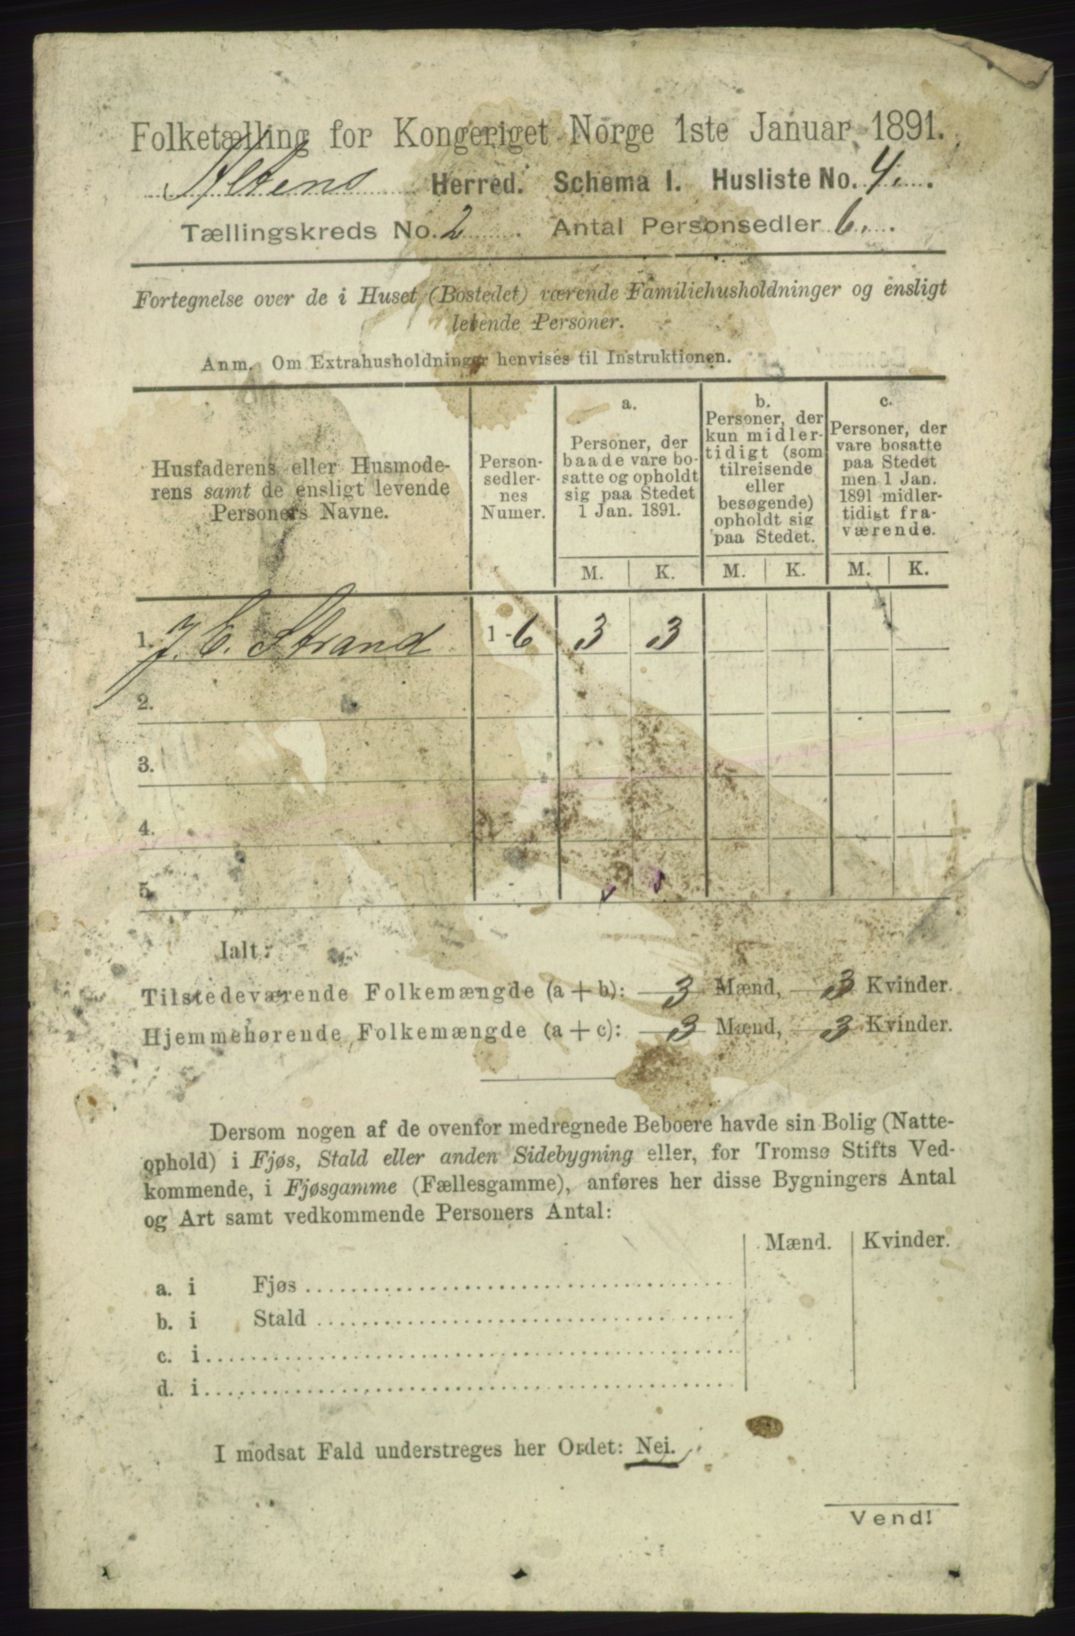 Folketælling for Kongeriget Norge 1ste Januar 1891.
Altens Herred. Schema I. Husliste No. 4.
Tællingskreds No. 2. Antal Personsedler 6.
Fortegnelse over de i Huset (Bostedet) værende Familiehusholdninger og ensligt
levende Personer.
Anm. Om Extrahusholdninger henvises til Instruktionen.
Husfaderens eller Husmode-
rens samt de ensligt levende
Personers Navne.
Person-
sedler-
nes
Numer.
a.
Personer, der
baade vare bo-
satte og opholdt
sig paa Stedet
1 Jan. 1891.
b.
Personer, der
kun midler-
tidigt (som
tilreisende
eller
besøgende)
opholdt sig
paa Stedet.
c.
Personer, der
vare bosatte
paa Stedet
men 1 Jan.
1891 midler-
tidigt fra-
værende.
M. K. M. K. M. K.
1. J. E. Strand 1-6 3 3
2.
3.
4.
5.
Ialt:
Tilstedeværende Folkemængde (a+b): 3 Mænd, 3 Kvinder.
Hjemmehørende Folkemængde (a+c): 3 Mænd, 3 Kvinder.
Dersom nogen af de ovenfor medregnede Beboere havde sin Bolig (Natte-
ophold) i Fjøs, Stald eller anden Sidebygning eller, for Tromsø Stifts Ved-
kommende, i Fjøsgamme (Fællesgamme), anføres her disse Bygningers Antal
og Art samt vedkommende Personers Antal:
Mænd. Kvinder.
a. i Fjøs
b. i Stald
c. i
d. i
I modsat Fald understreges her Ordet: Nej.
Vend!